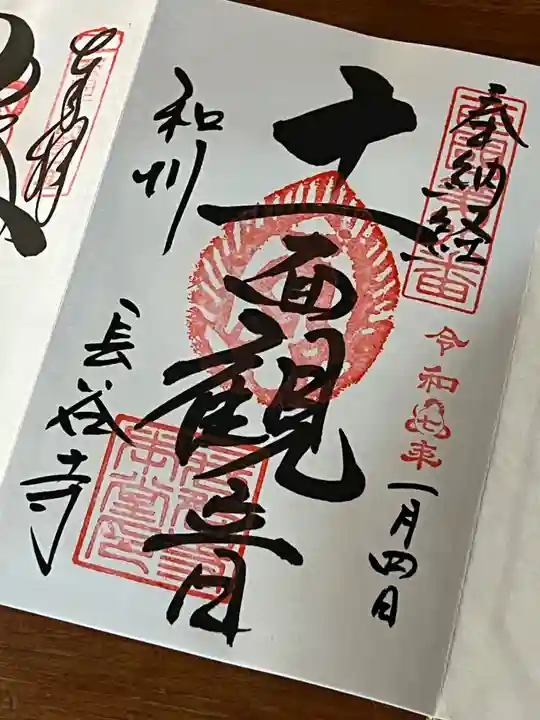 奉納経
令和七年
一月四日
十一面観音
和州
長谷寺
奉拝